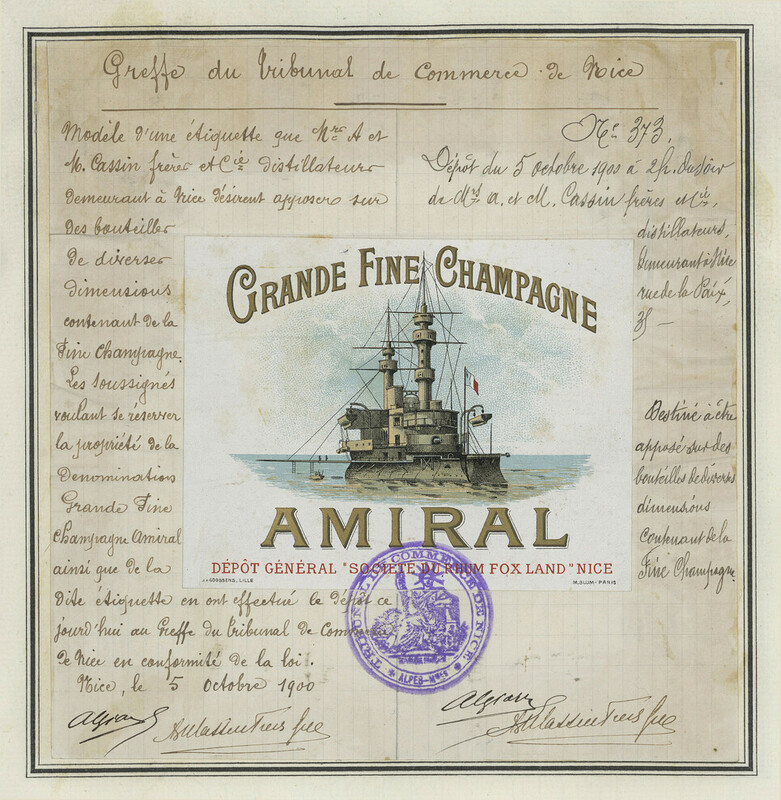 Greffe du Tribunal de Commerce de Nice
Modèle d'une étiquette que Mrs A et
M. Cassin frères et Cie distillateurs
demeurant à Nice désirent apposer sur
des bouteilles
de diverses
dimensions
contenant de la
Fine Champagne.
Les soussignés
voulant se réserver
la propriété de la
Denomination
Grande Fine
Champagne Amiral
ainsi que de la
dite étiquette en ont effectué le dépôt ce
jourd'hui au Greffe du Tribunal de Commerce
de Nice en conformité de la loi.
Nice, le 5 Octobre 1900
No 373.
Dépôt du 5 octobre 1900 à 2h. du soir
de Mrs A. et M. Cassin frères et Cie,
distillateurs,
demeurant à Nice
rue de la Paix,
35 —
Destiné à être
apposé sur des
bouteilles de diverses
dimensions
contenant de la
Fine Champagne.
GRANDE FINE CHAMPAGNE
AMIRAL
DÉPÔT GÉNÉRAL "SOCIÉTÉ DU RHUM FOX LAND" NICE
LILLE
M. BLUM - PARIS
TRIBUNAL DE COMMERCE DE NICE
ALPES-Mmes